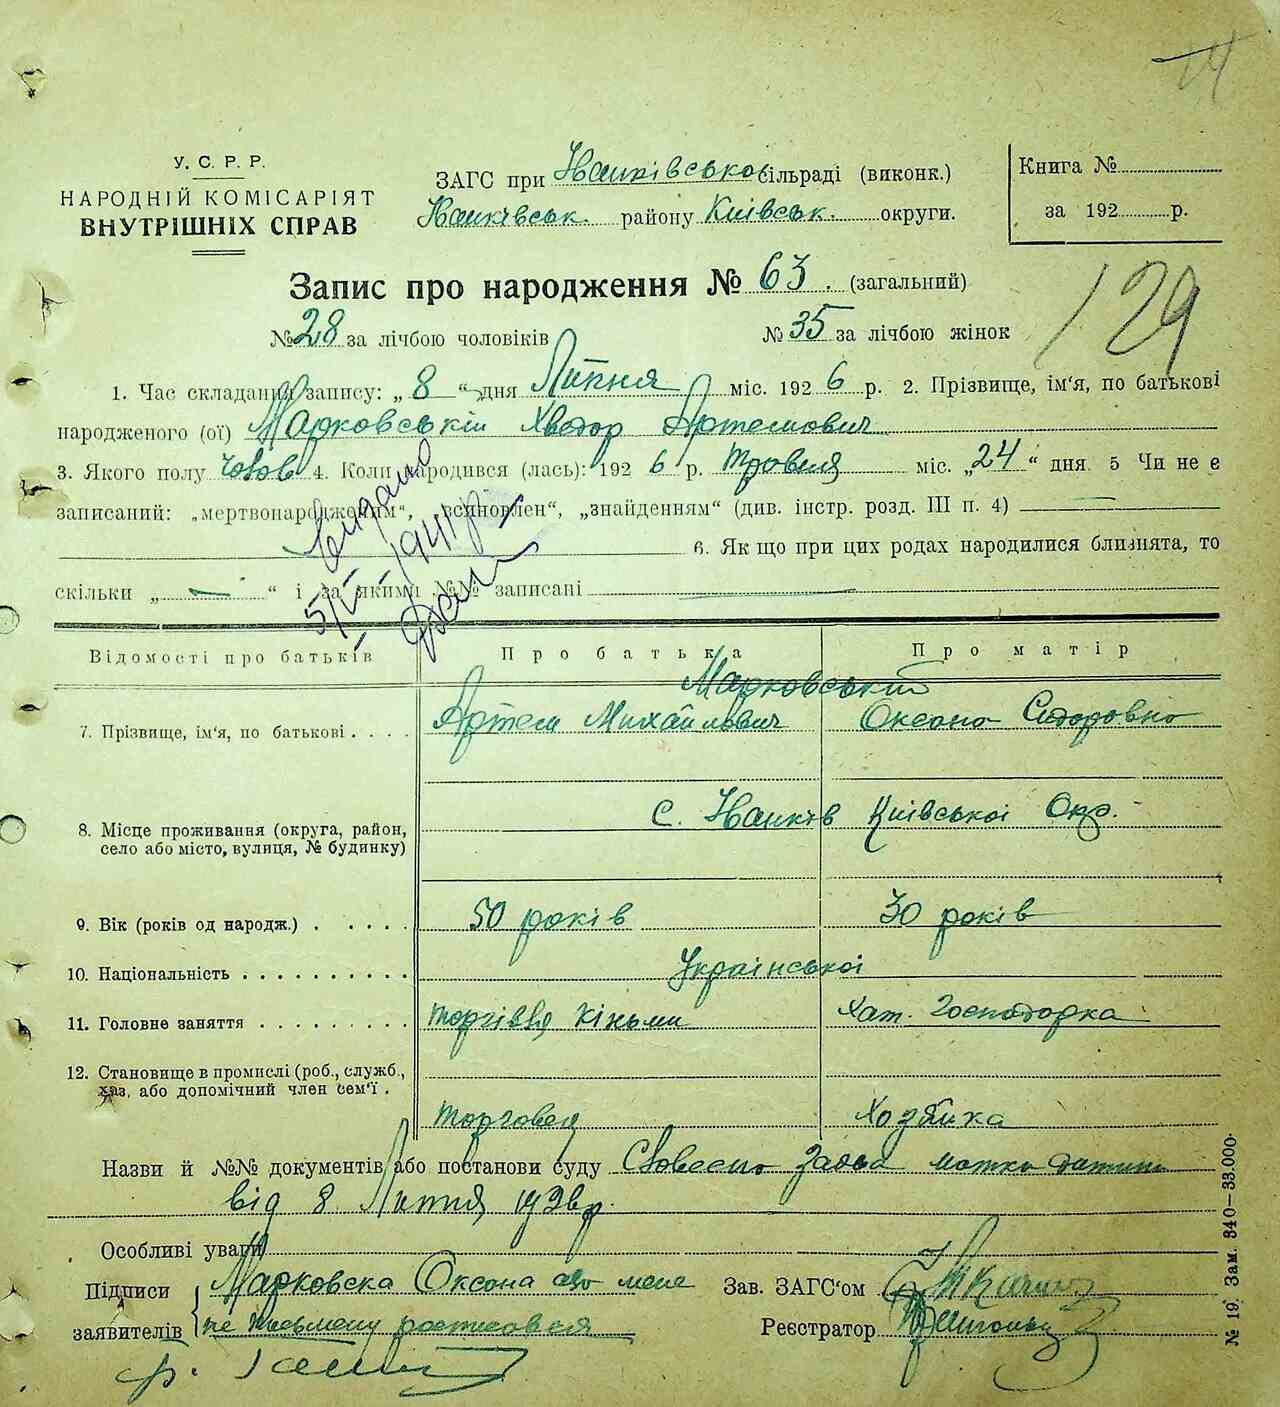 14
У. С. Р. Р.
НАРОДНІЙ КОМІСАРІЯТ
ВНУТРІШНІХ СПРАВ
ЗАГС при Іванківсько сільраді (виконк.)
Іванківськ. району Київськ. округи.
Книга №
за 192 р.
Запис про народження № 63. (загальний)
129
№ 28 за лічбою чоловіків № 35 за лічбою жінок
1. Час складання запису: „ 8 “ дня Липня міс. 192 6 р. 2. Прізвище, ім'я, по батькові
народженого (ої) Марковський Хведор Артемович
3. Якого полу чолов 4. Коли народився (лась): 192 6 р. Травня міс. „ 24 “ дня. 5 Чи не є
записаний: „мертвонародженим“, „всиновлен“, „знайденням“ (див. інстр. розд. III п. 4) —
6. Як що при цих родах народилися близнята, то
скільки „ — “ і за якими №№ записані
видано
5/V 1941 р
Відомості про батьків Про батька Про матір
Марковський
7. Прізвище, ім'я, по батькові . . . . Артем Михайлович Оксана Сидоровна
с. Іванків Київської Окр.
8. Місце проживання (округа, район,
село або місто, вулиця, № будинку)
9. Вік (років од народж.) . . . . . 50 років 30 років
10. Національність . . . . . . . . . . Української
11. Головне заняття . . . . . . . . . Торгівля кіньми Хат. Господарка
12. Становище в промислі (роб., служб.,
хаз, або допомічний член сем'ї .
Торговец Хозяйка
Назви й №№ документів або постанови суду Словесно заява матки дитини
від 8 Липня 1926 р.
Особливі уваги
Підписи Марковска Оксана або мене Зав. ЗАГС'ом
заявителів не письмену росписовся Реєстратор
№ 19. Зам. 340—33.000.